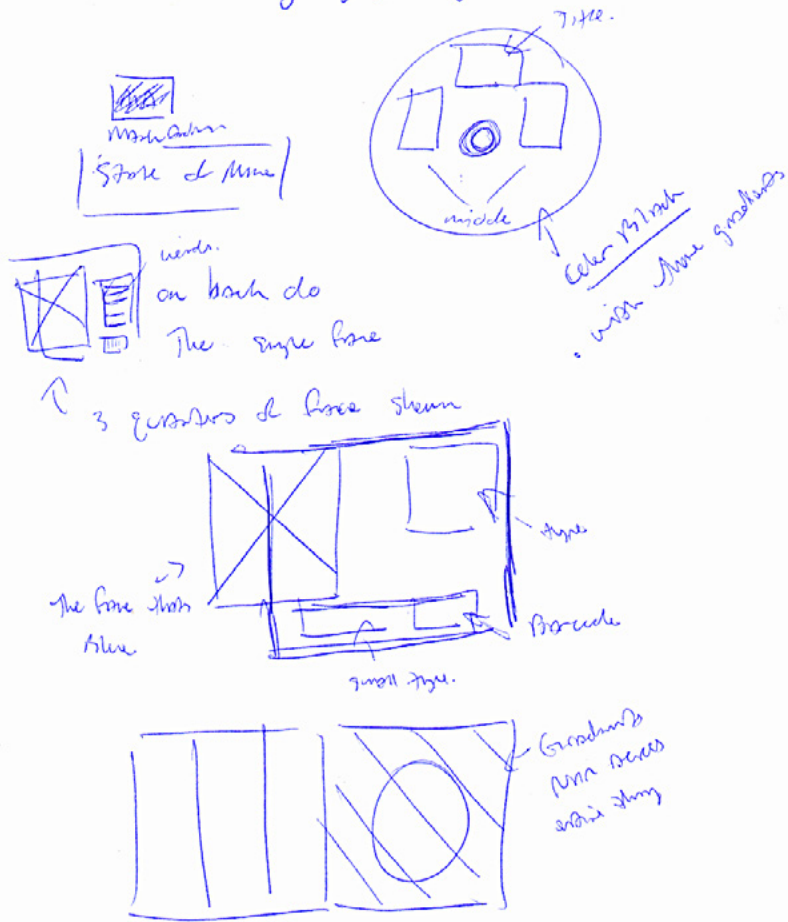 Title.
State of Mine
middle
Color Block
with three gradients
words.
on back do
The single face
3 quarters of face shown
type
The face that's
Blue
Barcode
small type.
Gradients
run across
entire thing